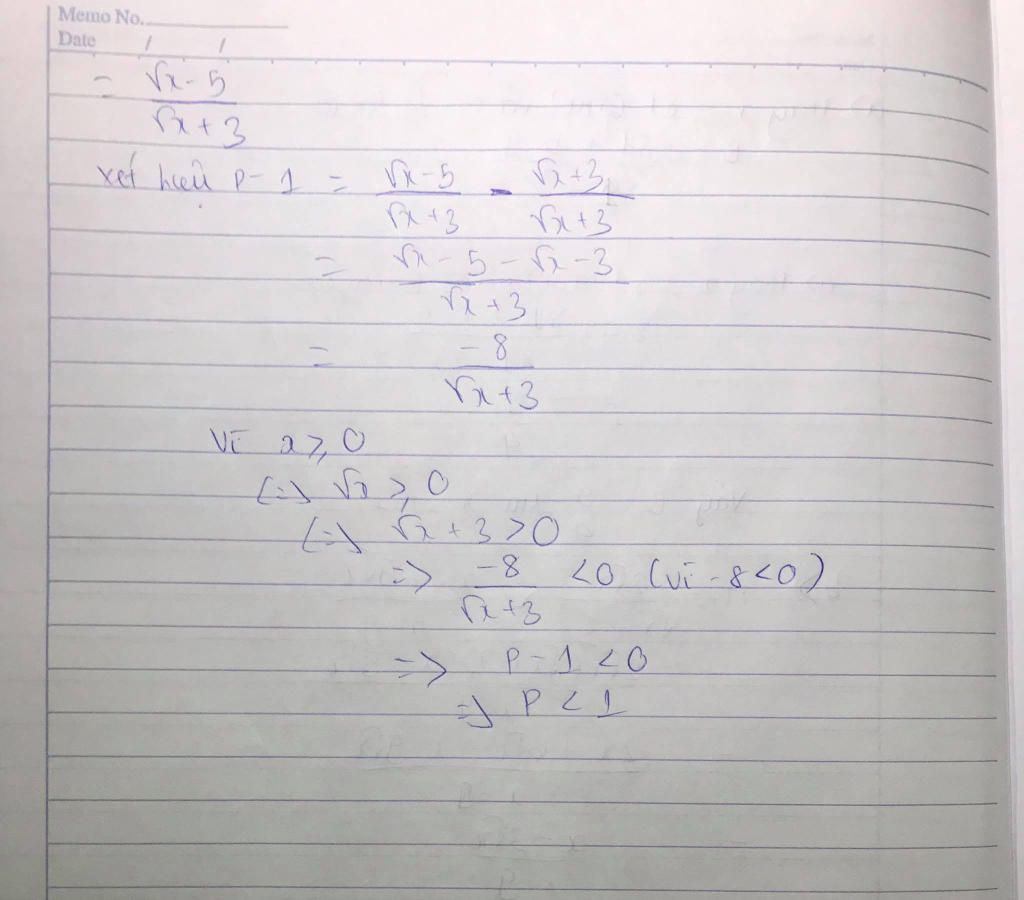 Memo No.
Date / /
= (√x - 5)/(√x + 3)
xét hiệu P - 1 = (√x - 5)/(√x + 3) - (√x + 3)/(√x + 3)
= (√x - 5 - √x - 3)/(√x + 3)
= (-8)/(√x + 3)
Vì x ≥ 0
(=) √x ≥ 0
(=) √x + 3 > 0
=> (-8)/(√x + 3) < 0 (vì -8 < 0)
=> P - 1 < 0
=> P < 1